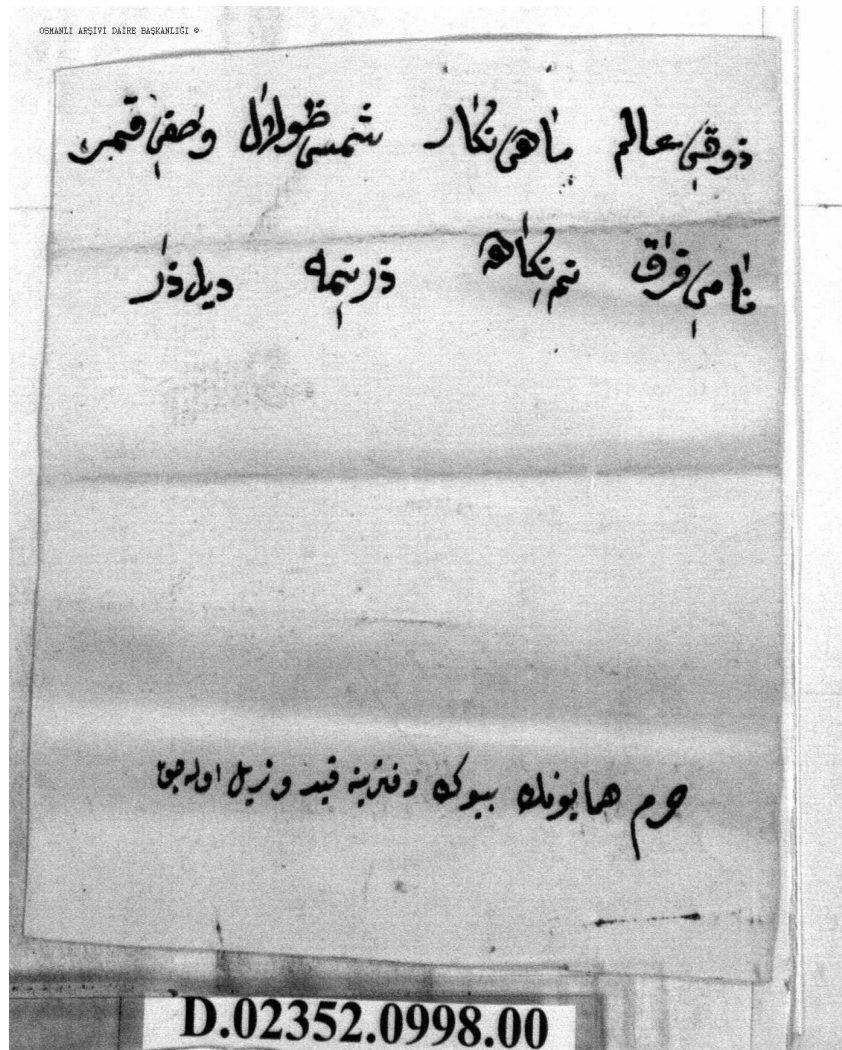 OSMANLI ARŞİVİ DAİRE BAŞKANLIĞI ©
ذوقِى عالم ماهِى نكار شمسِى ظولال وصفِى قمبر
نامِى فراق نم نِكاه در نِمه ديل دار
حرم همايونك بيوك دفترينه قيد و اوله جق
D.02352.0998.00